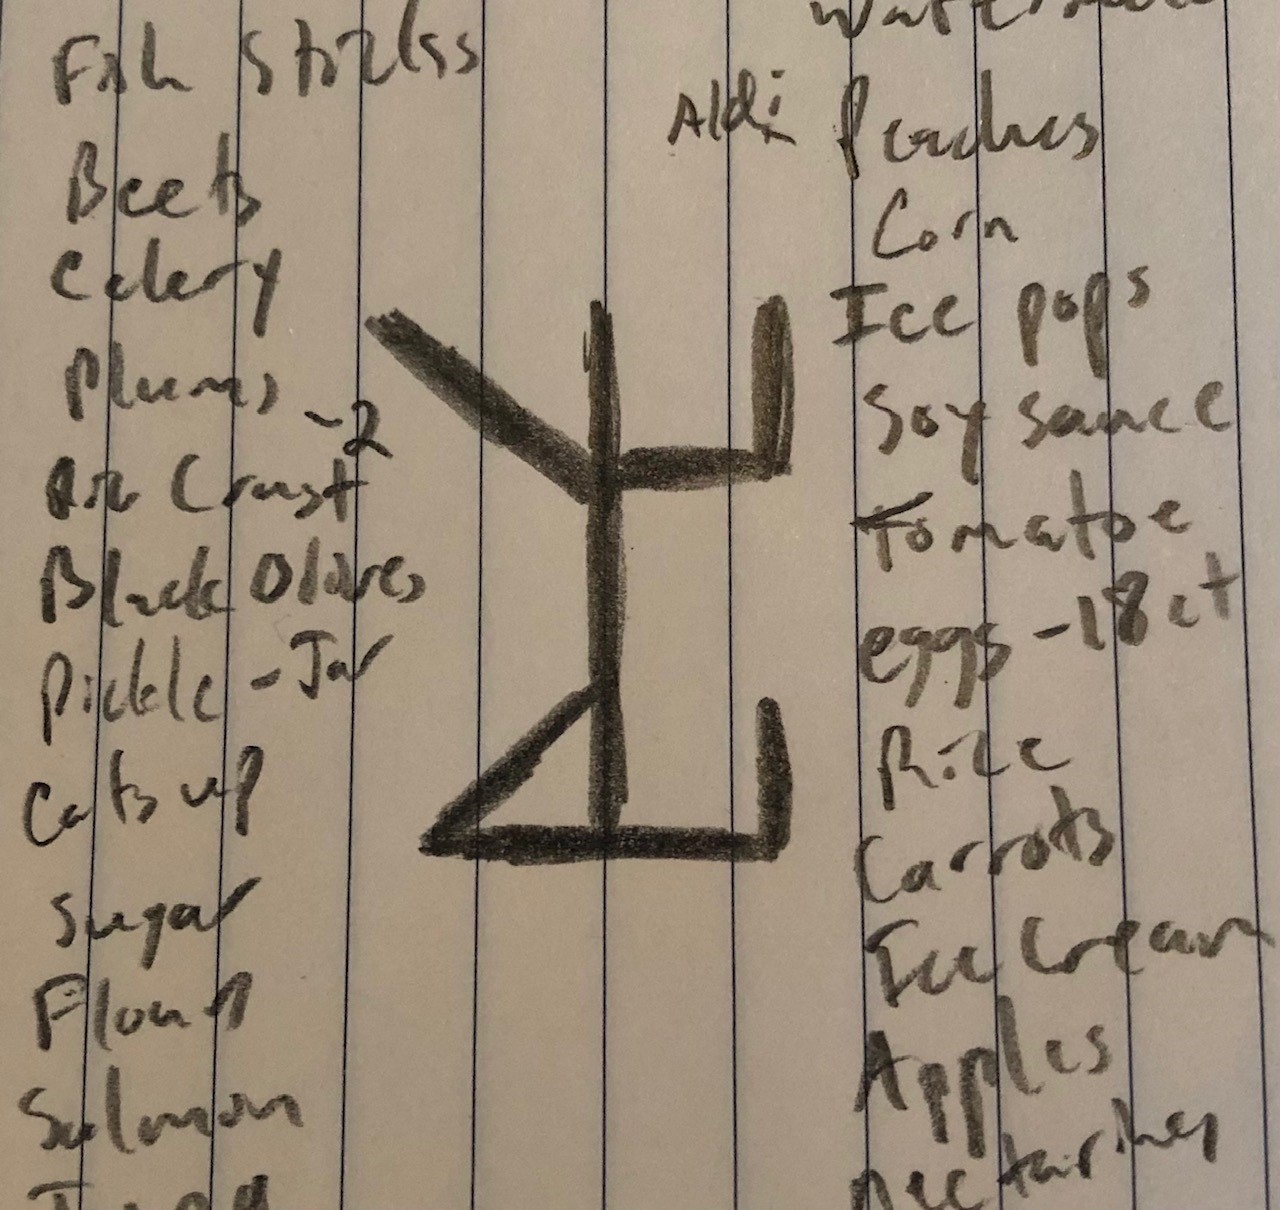 Fish Sticks
Beets
Celery
Plums
Pie Crust -2
Black Olives
Pickle - Jar
Catsup
Sugar
Flour
Salmon
Tuna
Aldi Peaches
Corn
Ice pops
Soy sauce
Tomatoe
eggs - 18 ct
Rice
Carrots
Ice Cream
Apples
Nectarines